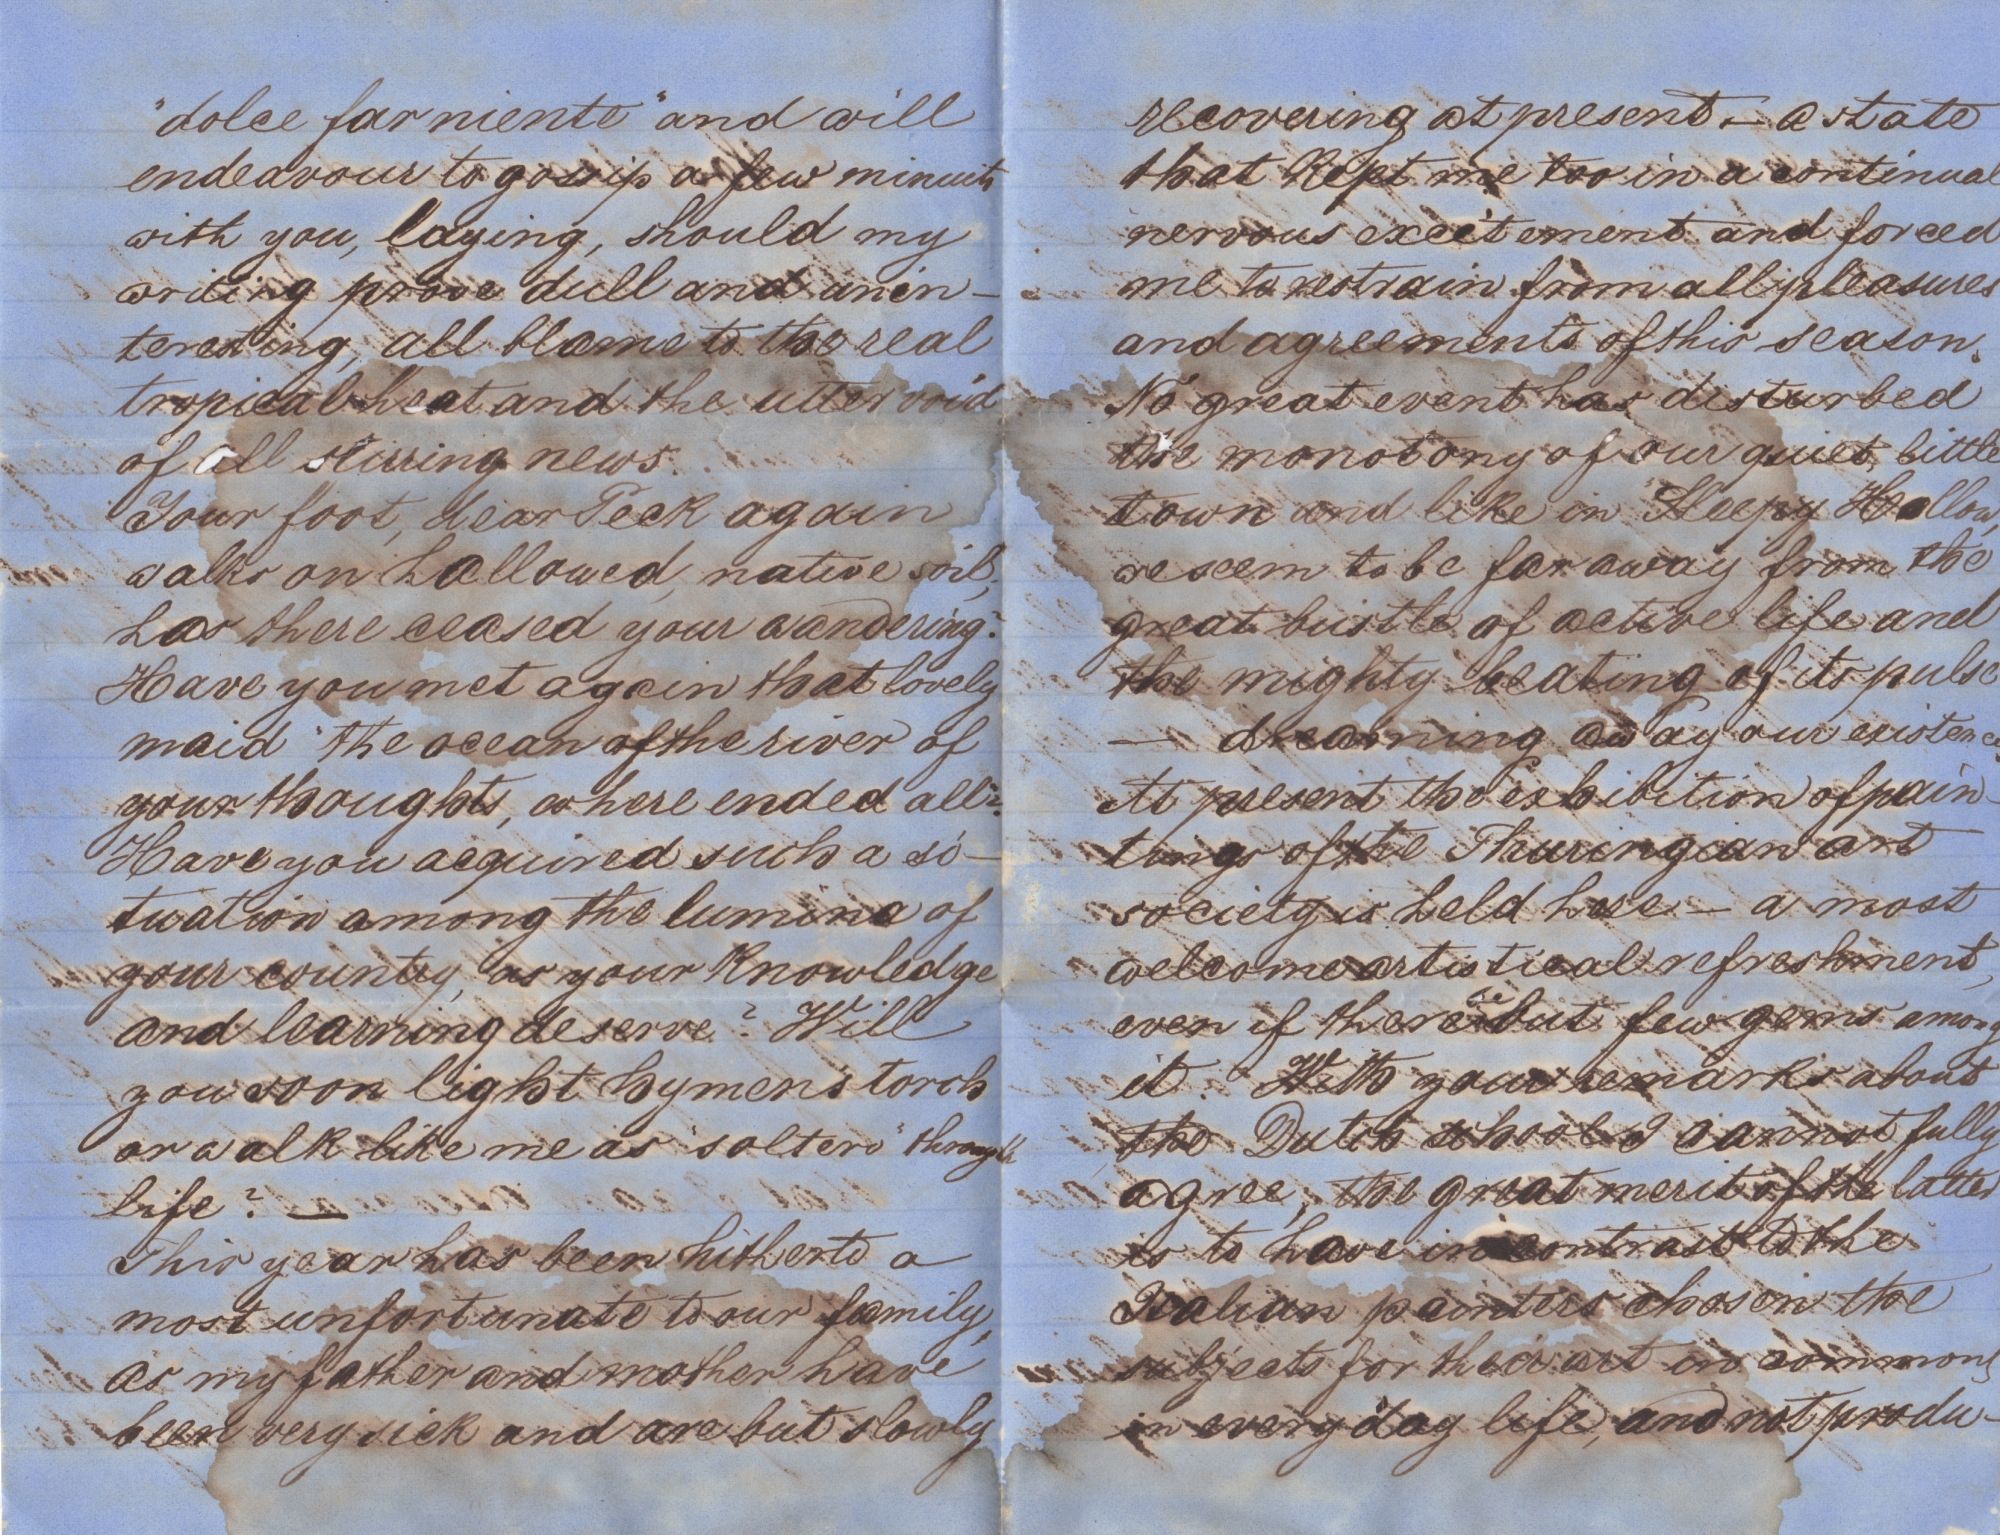 "dolce far niente" and will
endeavour to gossip a few minuits
with you, laying, should my
writing prove dull and unin-
teresting, all blame to the real
tropical heat and the utter void
of all stirring news.
Your foot, dear Peck again
walks on hallowed, native soil,
has there ceased your wandering?
Have you met again that lovely
maid "the ocean of the river of
your thoughts, where ended all"?
Have you acquired such a si-
tuation among the lumina of
your country, as your knowledge
and learning deserve? Will
you soon light hymen's torch
or walk like me as "soltero" through
life? —
This year has been hitherto a
most unfortunate to our family,
as my father and mother have
been very sick and are but slowly
recovering at present, — a state
that kept me too in a continual
nervous exceitement and forced
me to restrain from all pleasures
and agreements of this season.
No great event has disturbed
the monotony of our quiet, little
town and like in Sleepy Hollow,
we seem to be far away from the
great bustle of active life and
the mighty beating of its pulse
— dreaming away our existence.
At present the exhibition of pain-
tings of the Thuringian art
society is held here — a most
welcome artistical refreshment,
even if there be but few gems among
it. With your remarks about
the Dutch school I cannot fully
agree, the great merit of the latter
is to have in contrast to the
Italian painters chosen the
subjects for their art in common
in every day life, and not produ-